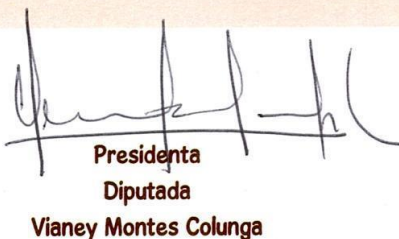 Presidenta
Diputada
Vianey Montes Colunga